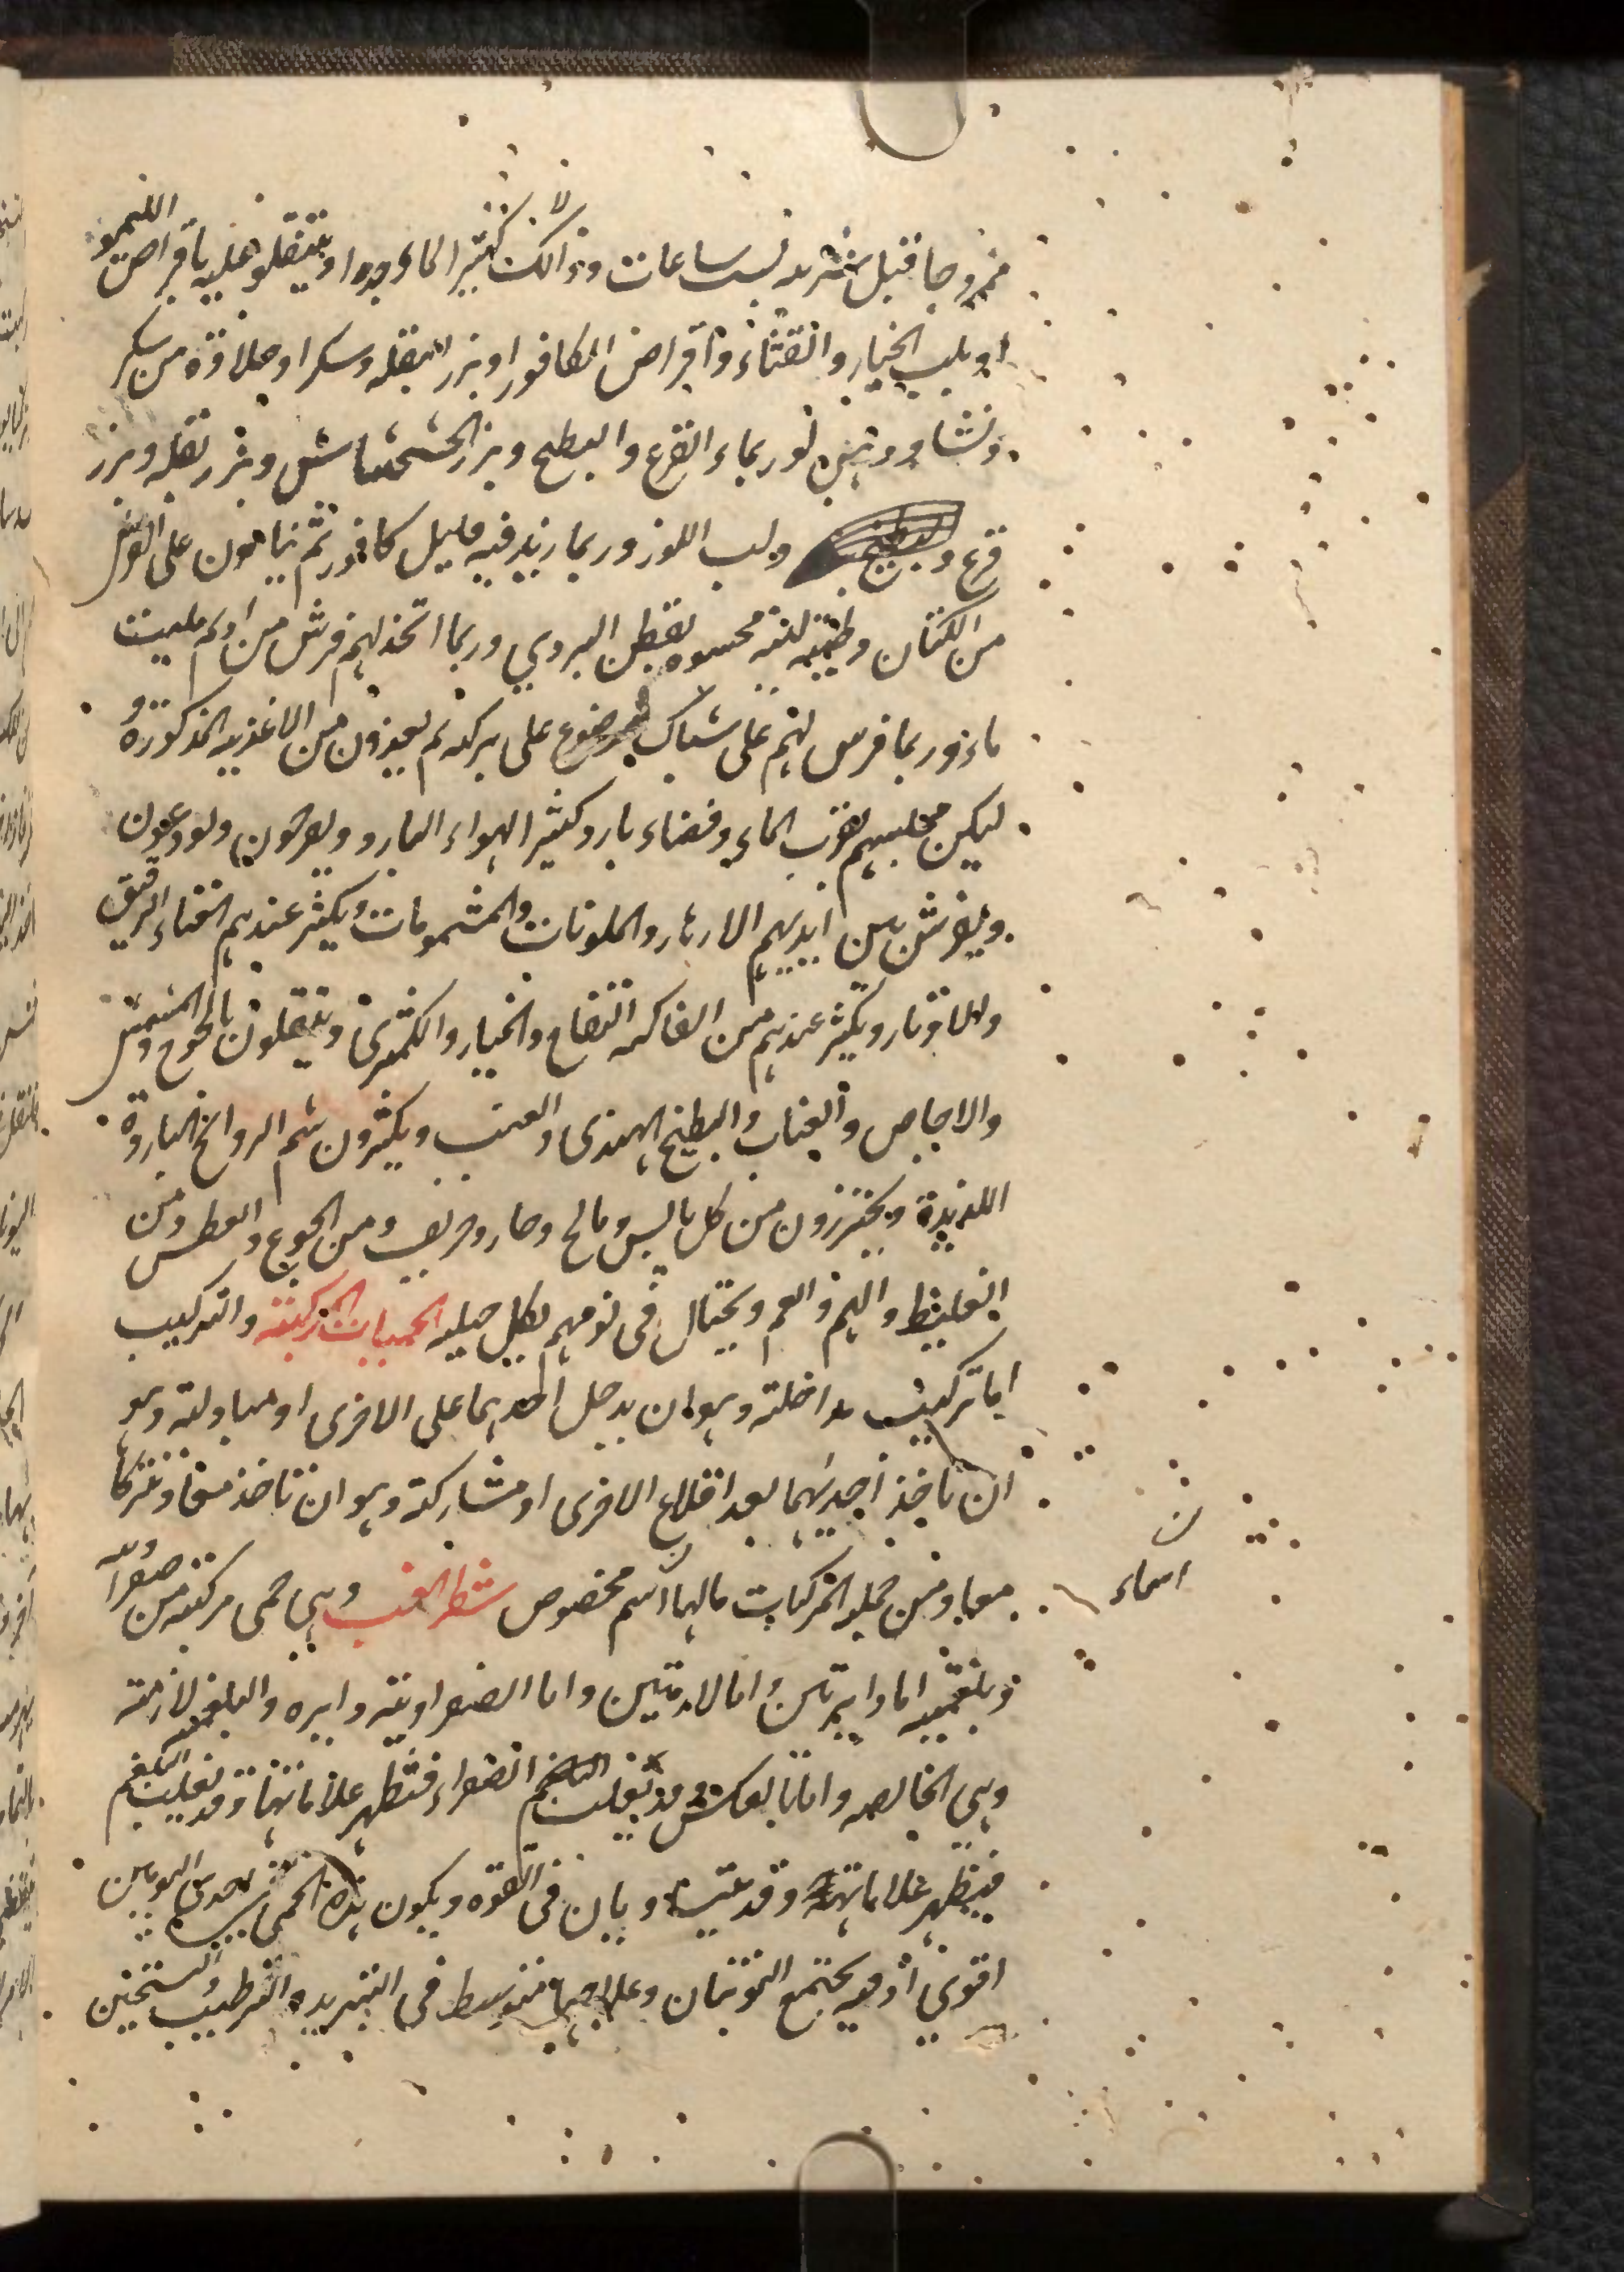 ممزوجا قبل شربه بست ساعات وذالك لا كثير الماء جدا او يتنقلو عليه باقراص الليمو
او بلب الخيار والقثاء واقراص الكافور او بزر البقله وسكرا وحلاوة من سكر
ونشا ودهن لوز بماء القرع والبطيخ وبزر الخشخاش وبزر بقله وبزر
قرع وبطيخ ولب اللوز وربما زيد فيه قليل كافور ثم ينامون على الفرش
من الكتان وطيئه لينه محشوه بقطن البردي وربما اتخذ لهم فرش من ادم مليت
ماء وربما فرش لهم على شباك موضوع على بركه ثم يغذون من الاغذيه المذكورة و
ليكن مجلسهم بقرب الماء وفضاء بارد كثير الهواء البارد ويفرحون ويودعون
ويفرش بين ايديهم الازهار والملونات والمشمومات ويكثر عندهم الغناء الرقيق
والاوتار ويكثر عندهم من الفاكهه التفاح والخيار والكمثرى ويتنقلون بالخوخ والمشمش
والاجاص والعناب والبطيخ الهندى والعنب ويكثرون شم الروائح الباردة
اللذيذة ويحترزون من كل يابس ومالح وحار وحريف ومن الجوع والعطش ومن
الغليظ والهم والغم ويحتال فى نومهم بكل حيله الحميات المركبة والتركيب
اما تركيب مداخلة وهو ان يدخل احدهما على الاخرى او مبادلة وهو
ان تاخذ احديهما بعد اقلاع الاخرى او مشاركة وهو ان تاخذ معا وتتركا
معا ومن جمله المركبات مالها اسم مخصوص شطر الغب وهى حمى مركبة من صفراويه
وبلغميه اما دايرتين واما لازمتين واما الصفراوية دايره والبلغميه لازمة
وهى الخالصه واما بالعكس وقد يغلب الصفراء فتظهر علاماتها وقد يغلب البلغم
فيظهر علاماتها وقد يتساويان فى القوه ويكون هذه الحمى احدى اليومين
اقوى اذ فيه يجتمع النوبتان وعلاجها متوسط فى التبريد والترطيب والتسخين
اسماء
ن